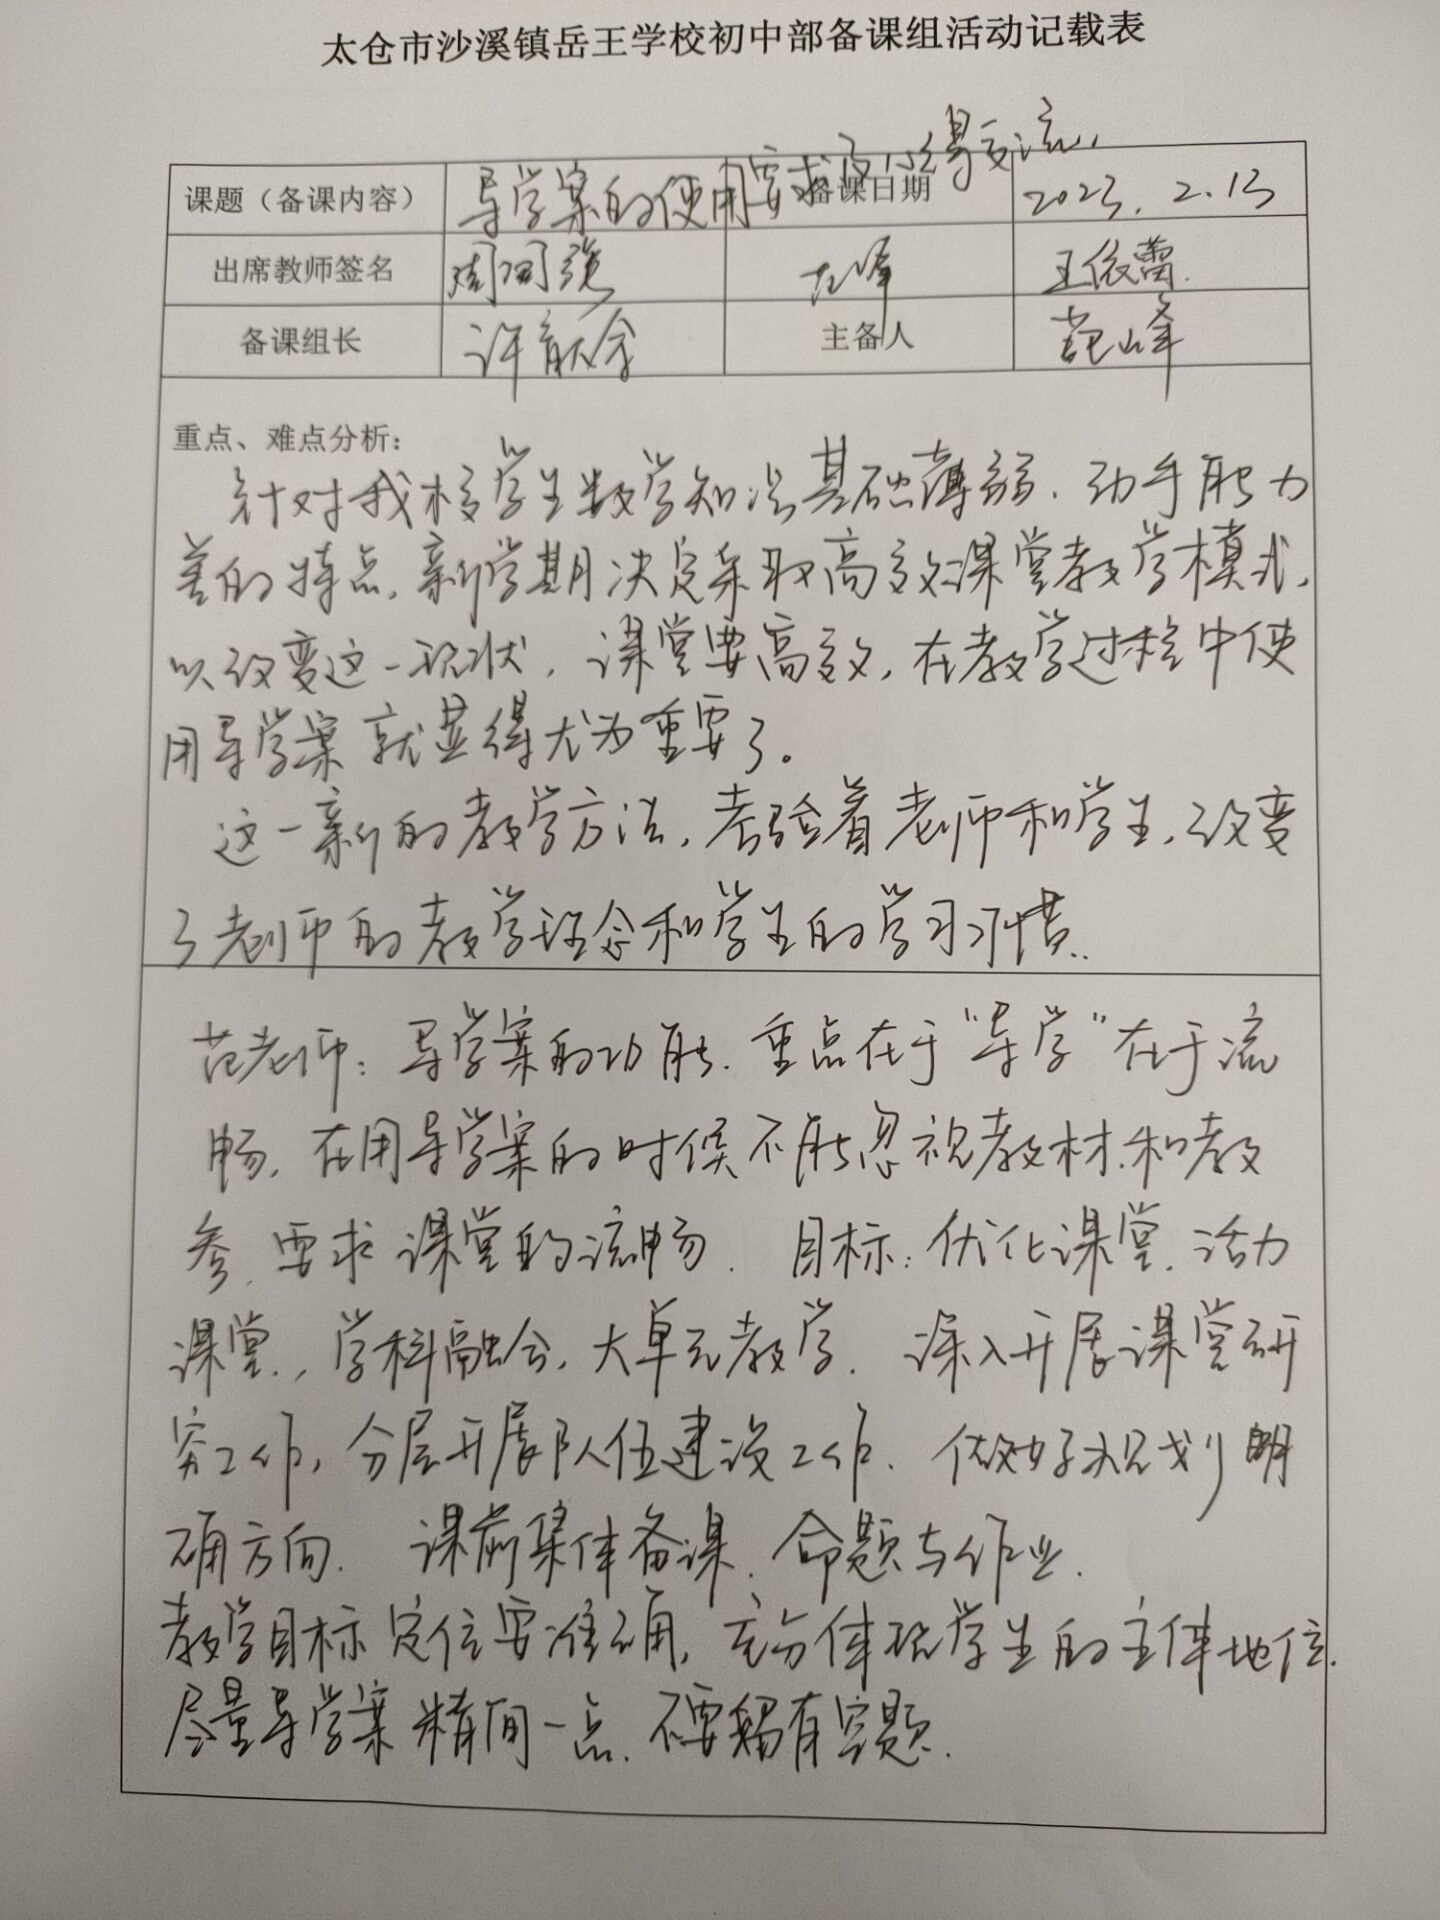 太仓市沙溪镇岳王学校初中部备课组活动记载表
课题（备课内容） 导学案的使用要求及心得交流. 备课日期 2023. 2.13
出席教师签名 王依蕾.
备课组长 许 主备人 范峰
重点、难点分析：
针对我校学生数学知识基础薄弱、动手能力
差的特点,新学期决定采取高效课堂教学模式,
以改变这一现状, 课堂要高效, 在教学过程中使
用导学案就显得尤为重要了。
这一新的教学方法, 考验着老师和学生, 改变
了老师的教学理念和学生的学习习惯.
范老师: 导学案的功能. 重点在于"导学"在于流
畅. 在用导学案的时候不能忽视教材.和教
参. 要求课堂的流畅. 目标: 优化课堂. 活力
课堂., 学科融合, 大单元教学. 深入开展课堂研
究工作, 分层开展队伍建设工作. 做好规划 明
确方向. 课前集体备课. 命题与作业.
教学目标定位要准确, 充分体现学生的主体地位.
尽量导学案精简一点. 不要 有空题.